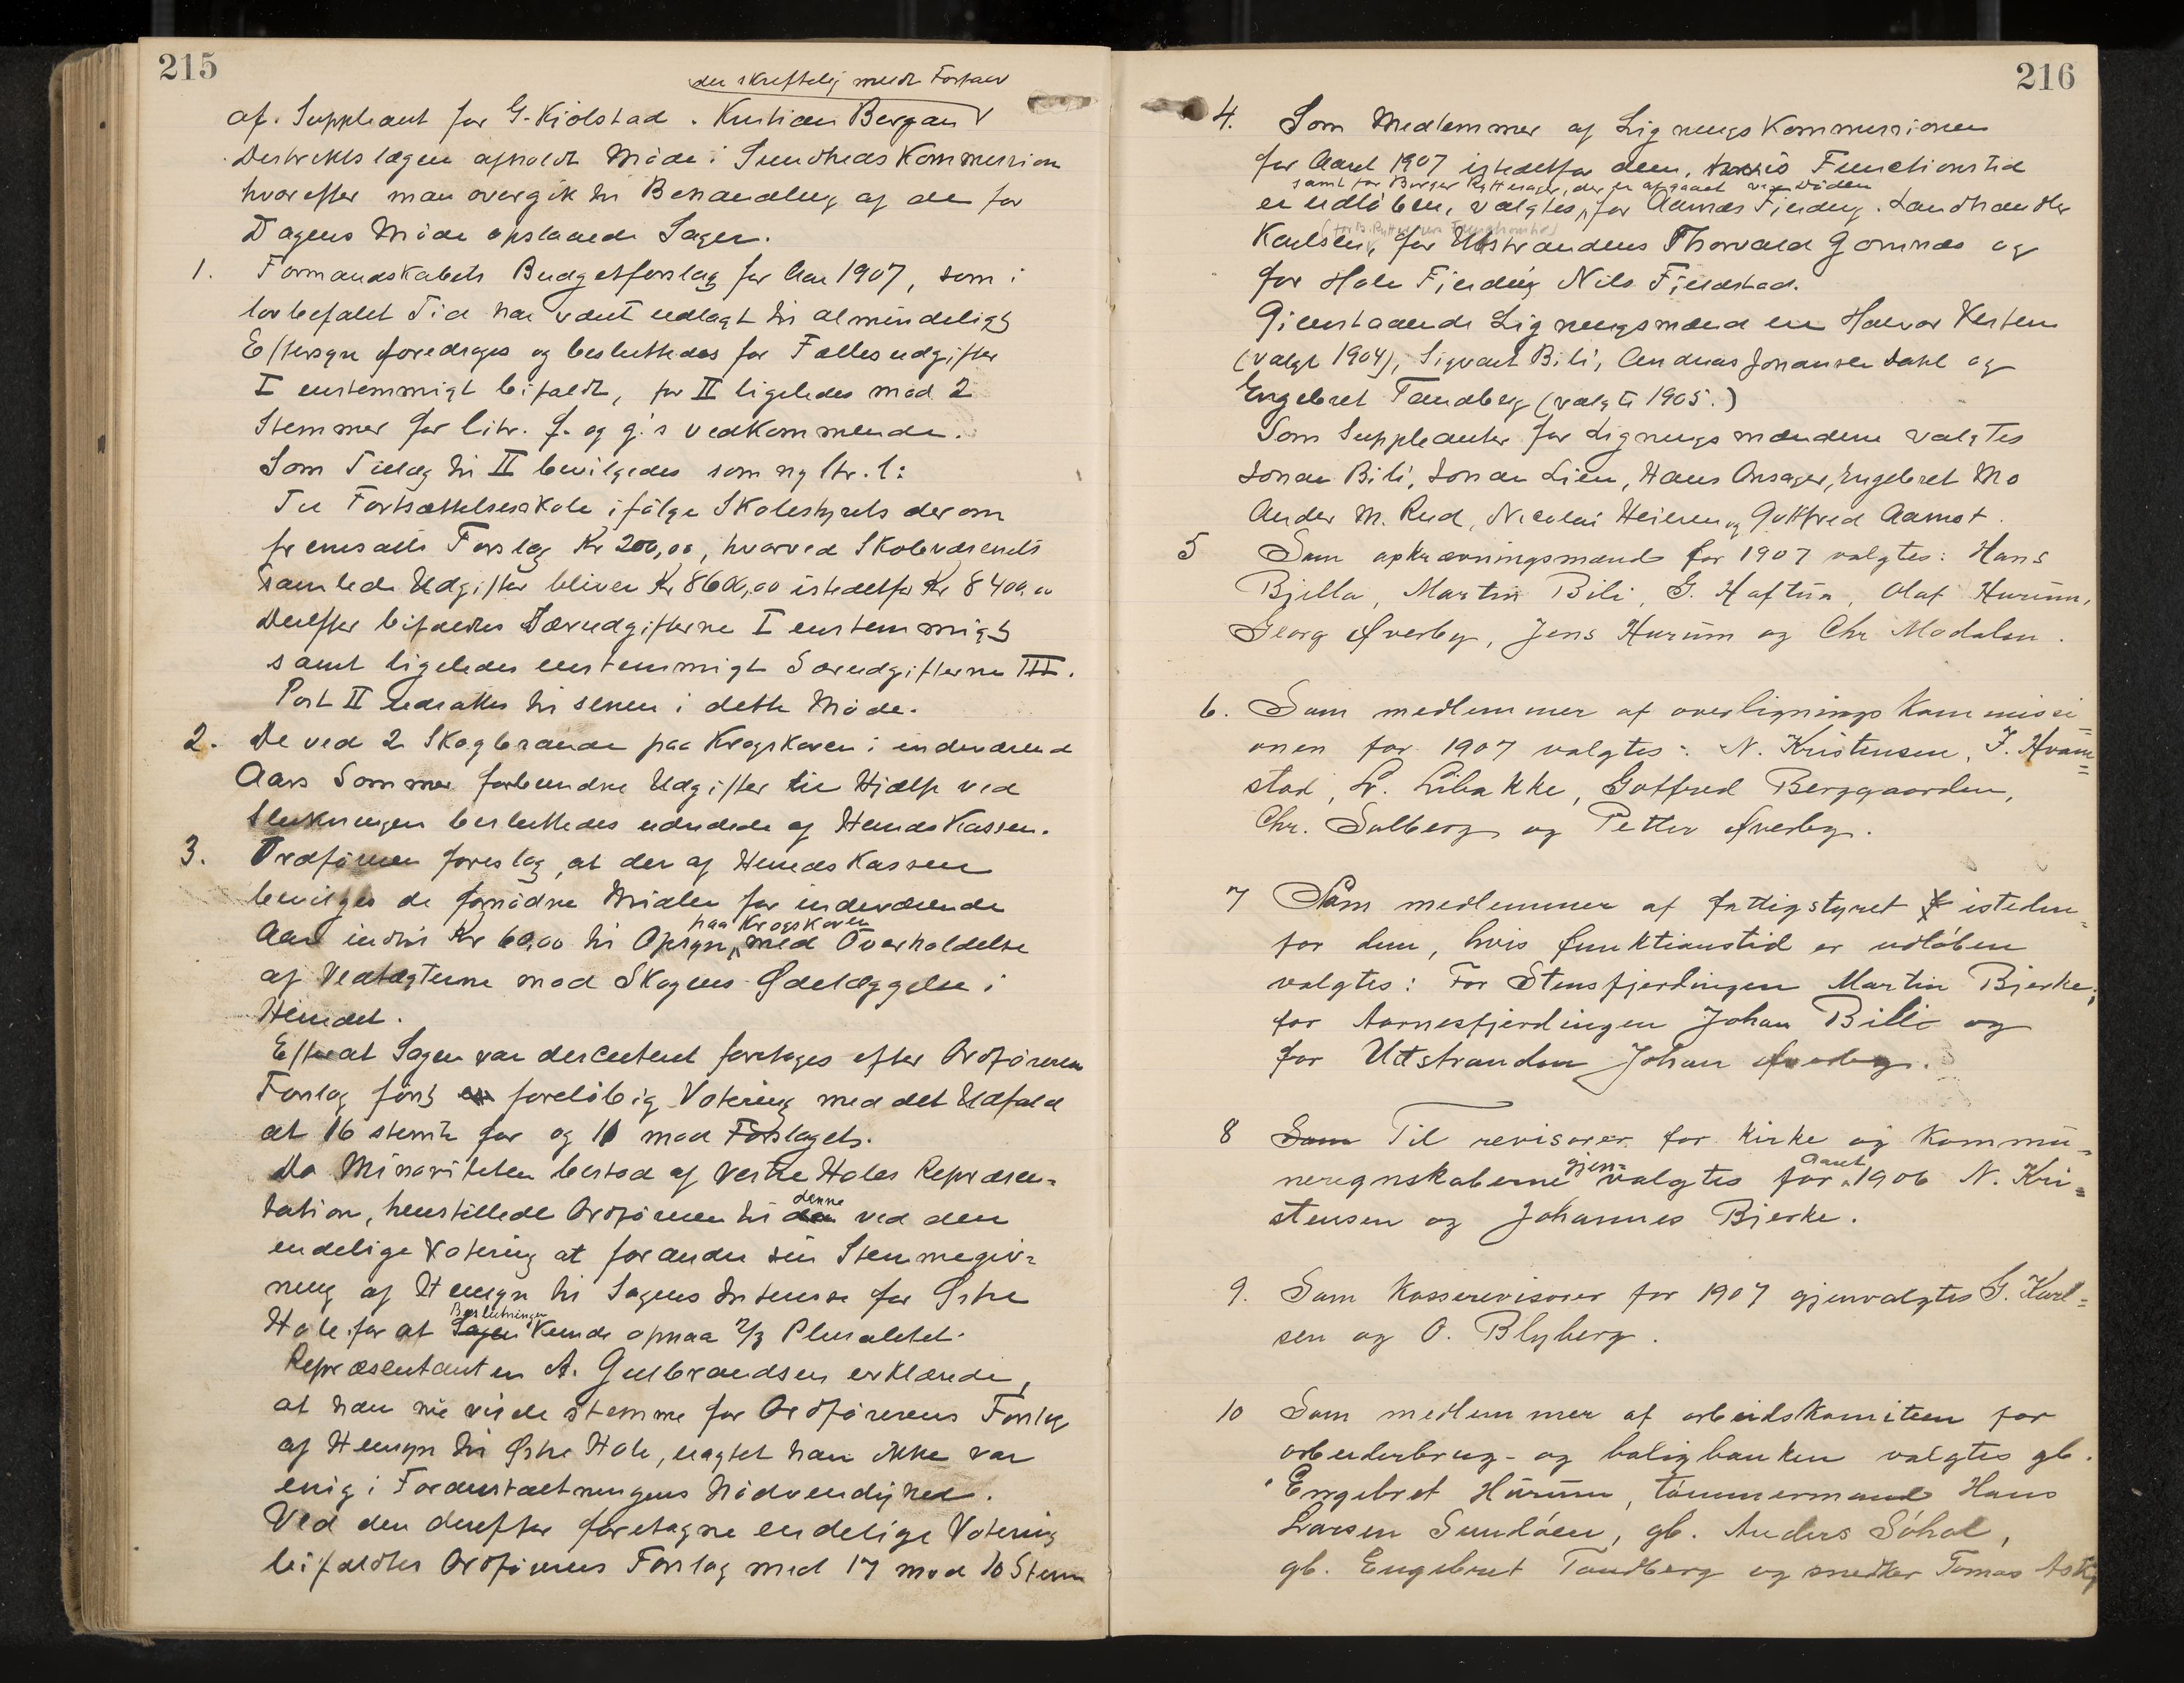 215
der skriftelig meldt Forfald
af Suppleant for G. Kjölstad. Kristian Bergan
Destriktslægen afholdt Möde i Sundheds Kommession
hvorefter man overgik til Behandling af de for
Dagens Möde opslaaede Sager.
1. Formandskabets Budgetforslag for Aar 1907, som i
lovbefalet Tid har været udlagt til almindeligt
Eftersyn foredroges og besluttedes for Fællesudgifter
I enstemmigt bifaldt, for II ligeledes mod 2
Stemmer for litr. f. og g.'s Vedkommende.
Som Tillæg til II bevilgedes som ny ltr. l:
Til Fortsættelsesskole ifölge Skolestyrets derom
fremsatte Forslag Kr 200,00, hvorved Skolevæsenets
samlede Udgifter bliver Kr 8600,00 istedetfor Kr 8400,00
Derefter bifaldtes Særudgifterne I enstemmigt
samt ligeledes enstemmigt Særudgifterne III.
Post II udsattes til senere i dette Möde.
2. De ved 2 Skogbrande paa Krogskoven i indeværende
Aars Sommer forbundne Udgifter til Hjælp ved
Slukningen besluttedes udredede af Herredskassen.
3. Ordföreren foreslog, at der af Herredskassen
bevilges de fornödne Midler for indeværende
paa Krogskoven
Aar indtil Kr 60,00 til Opsyn med Overholdelse
af Vedtægterne mod Skogens Ödelæggelse i
Herredet.
Efterat Sagen var descuteret foretoges efter Ordförerens
Forslag först en forelöbig Votering med det Udfald
at 16 stemte for og 11 mod Forslaget.
Da Minoriteten bestod af Vestre Holes Repræsen=
denne
tation, henstillede Ordföreren til den ved den
endelige Votering at forandre sin Stemmegiv=
ning af Hensyn til Sagens Interesse for Östre
Beslutningen
Hole for at Sagen kunde opnaa 2/3 Pluralitet.
Repræsentanten A. Gulbrandsen erklærede,
at han nu vilde stemme for Ordförerens Forslag
af Hensyn til Östre Hole, uagtet han ikke var
enig i Foranstaltningens Nödvendighed.
Ved den derefter foretagne endelige Votering
bifaldtes Ordförerens Forslag med 17 mod 10 Stem
216
4. Som Medlemmer af Ligningskommissionen
for Aaret 1907 istedetfor dem, hvis Functionstid
samt for Borger Rytterager, der er afgaaet ved Döden
er udlöben, valgtes, for Aarnæs Fjerding. Landhandler
Karlsen, for Utstranden Thorvald Gomnæs og
for Hole Fjerding Nils Fjeldstad.
Gjenstaaende Ligningsmænd er Halvor Vesteren
(valgt 1904), Sigvart Bili, Andreas Johansen Dahl og
Engebret Tandberg (valgte 1905.)
Som Suppleanter for Ligningsmændene valgtes
Johan Bili, Johan Lien, Hans Onsager, Engebret Mo
Anders M. Rud, Nicolai Heieren og Gotfred Aamot.
5 Som opkrævningsmænd for 1907 valgtes: Hans
Bjella, Martin Bili, G. Haftun, Olaf Hurum,
Georg Øverby, Jens Hurum og Chr Modalen.
6. Som medlemmer af overligningskommissi=
onen for 1907 valgtes: N. Kristensen, J. Hvam=
stad, L. Libakke, Gotfred Berggaarden,
Chr. Solberg og Petter Øverby.
7 Som medlemmer af fattigstyret f isteden=
for dem, hvis funktionstid er udlöben
valgtes: For Stensfjerdingen Martin Bjerke;
for Aarnesfjerdingen Johan Billi og
for Utstranden Johan Øverby.
8 Som Til revisorer for kirke og kommu=
gjen= Aaret
neregnskaberne valgtes for 1906 N. Kri=
stensen og Johannes Bjerke.
9. Som kasserevisorer for 1907 gjenvalgtes G. Karl=
sen og O. Blyberg.
10 Som medlemmer af arbeidskomiteen for
arbeiderbrug- og boligbanken valgtes gb.
Engebret Hurum, tömmermand Hans
Larsen Sundöen, gb. Anders Söhol,
gb. Engebret Tandberg og snedker Tomas Ask,